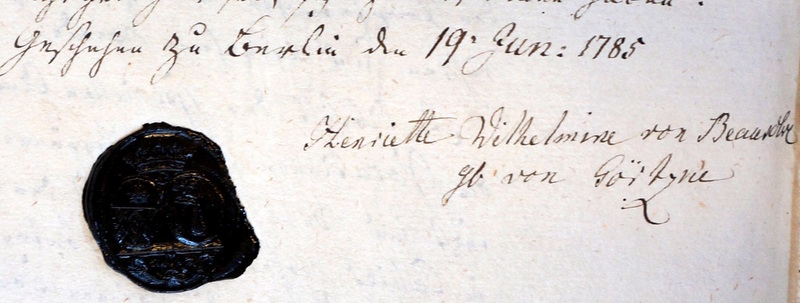 haben.
Geschehen zu Berlin den 19. Jun: 1785
Henriette Wilhelmine von Beausobre
gb von Göřtzne